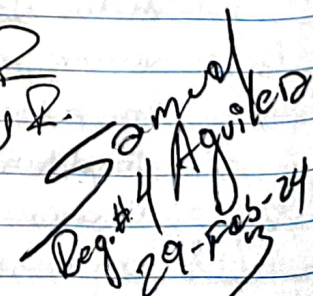 R.
Samuel
Aguilera
Reg. # 4
29-Feb-24